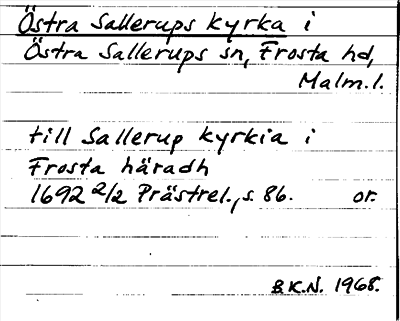 Östra Sallerups kyrka i
Östra Sallerups sn, Frosta hd,
Malm.l.
till Sallerup kyrkia i
Frosta häradh
1692 2/2 Prästrel., s. 86. or.
B.K.N. 1968.